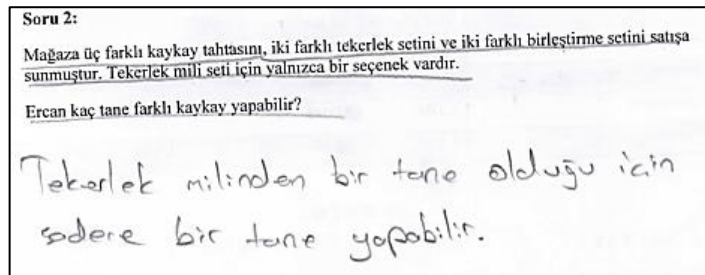 Soru 2:
Mağaza üç farklı kaykay tahtasını, iki farklı tekerlek setini ve iki farklı birleştirme setini satışa
sunmuştur. Tekerlek mili seti için yalnızca bir seçenek vardır.
Ercan kaç tane farklı kaykay yapabilir?
Tekerlek milinden bir tane olduğu için
sadece bir tane yapabilir.